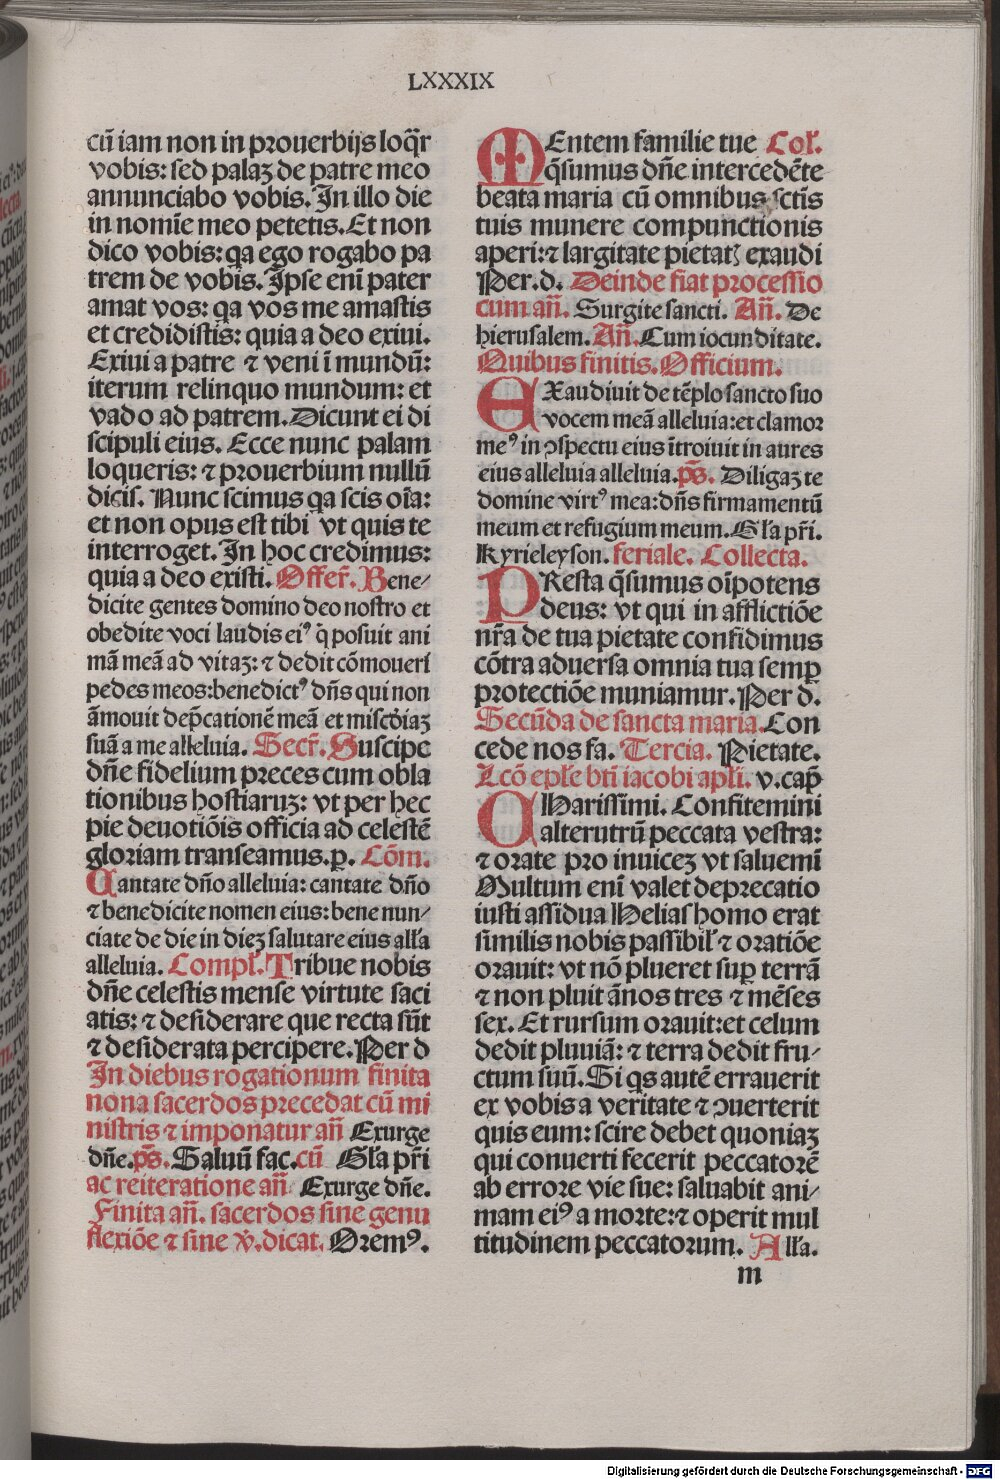 LXXXIX
cū iam non in prouerbijs loq̄r
vobis: sed palaʒ de patre meo
annunciabo vobis. In illo die
in nomīe meo petetis. Et non
dico vobis: qa ego rogabo pa
trem de vobis. Ipse enī pater
amat vos: qa vos me amastis
et credidistis: quia a deo exiui.
Exiui a patre ⁊ veni ī mundū:
iterum relinquo mundum: et
vado ad patrem. Dicunt ei di
scipuli eius. Ecce nunc palam
loqueris: ⁊ prouerbium nullū
dicis. Nunc scimus qa scis oīa:
et non opus est tibi vt quis te
interroget. In hoc credimus:
quia a deo existi. Offer̄. Bene⸗
dicite gentes domino deo nostro et
obedite voci laudis eiꝰ q̄ posuit ani
mā meā ad vitaʒ: ⁊ dedit cōmoueri
pedes meos: benedictꝰ dn̄s qui non
āmouit dep̄cationē meā et miscd̄iaʒ
suā a me alleluia. Secr̄. Suscipe
dn̄e fidelium preces cum obla
tionibus hostiaruʒ: vt per hec
pie deuotiōis officia ad celestē
gloriam transeamus. p. Cōm.
Cantate dn̄o alleluia: cantate dn̄o
⁊ benedicite nomen eius: bene nun⸗
ciate de die in dieʒ salutare eius alła
alleluia. Compł. Tribue nobis
dn̄e celestis mense virtute saci
atis: ⁊ desiderare que recta sūt
⁊ desiderata percipere. Per d
In diebus rogationum finita
nona sacerdos precedat cū mi
nistris ⁊ imponatur an̄ Exurge
dn̄e. p̄s. Saluū fac. cū Gła pr̄i
ac reiteratione an̄ Exurge dn̄e.
Finita an̄. sacerdos sine genu
flexiōe ⁊ sine v̄. dicat. Oremꝰ.
MEntem familie tue Coł.
q̄sumus dn̄e intercedēte
beata maria cū omnibus sctīs
tuis munere compunctionis
aperi: ⁊ largitate pietatꝭ exaudi
Per. d. Deinde fiat processio
cum an̄. Surgite sancti. An̄. De
hierusalem. An̄. Cum iocunditate.
Quibus finitis. Officium.
EXaudiuit de tēplo sancto suo
vocem meā alleluia: et clamor
meꝰ in ↄspectu eius ītroiuit in aures
eius alleluia alleluia. p̄s. Diligaʒ te
domine virtꝰ mea: dn̄s firmamentū
meum et refugium meum. Gła pr̄i.
Kyrieleyson. feriale. Collecta.
PResta q̄sumus oīpotens
deus: vt qui in afflictiōe
nr̄a de tua pietate confidimus
cōtra aduersa omnia tua semꝑ
protectiōe muniamur. Per d.
Secūda de sancta maria. Con
cede nos fa. Tercia. Pietate.
Lcō epłe btī iacobi apłi. v. cap̄
CHarissimi. Confitemini
alterutrū peccata vestra:
⁊ orate pro inuiceʒ vt saluemī
Multum enī valet deprecatio
iusti assidua Helias homo erat
similis nobis passibił ⁊ oratiōe
orauit: vt nō plueret suꝑ terrā
⁊ non pluit ānos tres ⁊ mēses
sex. Et rursum orauit: et celum
dedit pluuiā: ⁊ terra dedit fru⸗
ctum suū. Si qs autē errauerit
ex vobis a veritate ⁊ ↄuerterit
quis eum: scire debet quoniaʒ
qui conuerti fecerit peccatorē
ab errore vie sue: saluabit ani⸗
mam eiꝰ a morte: ⁊ operit mul
titudinem peccatorum. Alła.
m
Digitalisierung gefördert durch die Deutsche Forschungsgemeinschaft - DFG